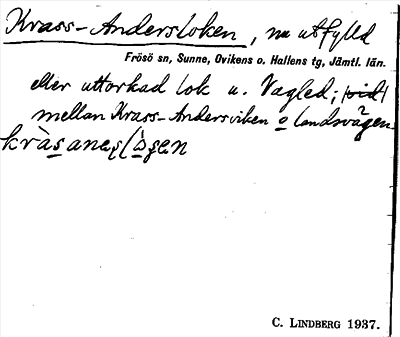 Krass-Andersloken, nu utfylld
Frösö sn, Sunne, Ovikens o. Hallens tg, Jämtl. län.
eller uttorkad lok u. Vagled; vid
mellan Krass-Andersviken o landsvägen.
C. LINDBERG 1937.